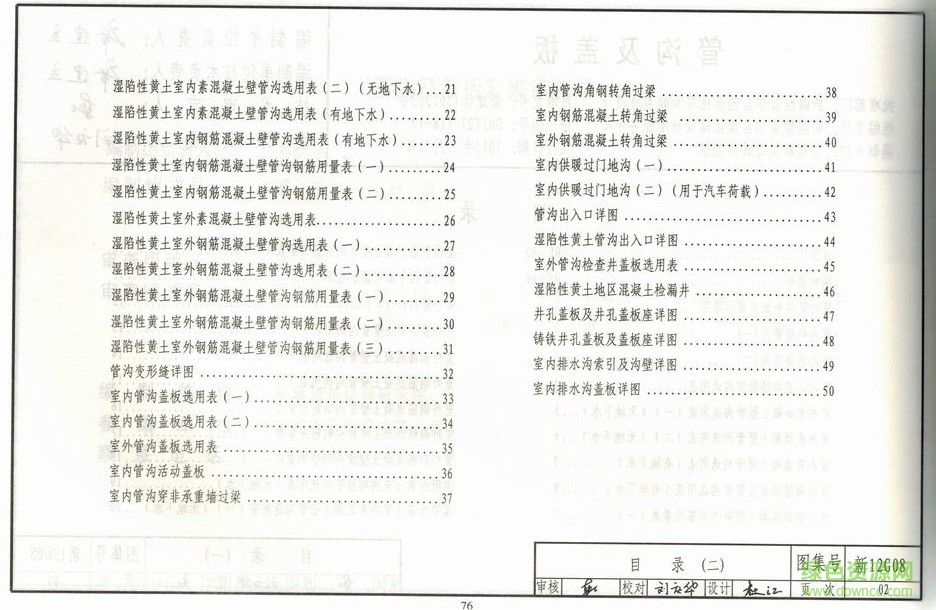 湿陷性黄土室内素混凝土壁管沟选用表(二)(无地下水)....21
湿陷性黄土室内素混凝土壁管沟选用表(有地下水)........22
湿陷性黄土室内钢筋混凝土壁管沟选用表(有地下水)......23
湿陷性黄土室内钢筋混凝土壁管沟钢筋用量表(一)........24
湿陷性黄土室内钢筋混凝土壁管沟钢筋用量表(二)........25
湿陷性黄土室外素混凝土壁管沟选用表..................26
湿陷性黄土室外钢筋混凝土壁管沟选用表(一)............27
湿陷性黄土室外钢筋混凝土壁管沟选用表(二)............28
湿陷性黄土室外钢筋混凝土壁管沟钢筋用量表(一)........29
湿陷性黄土室外钢筋混凝土壁管沟钢筋用量表(二)........30
湿陷性黄土室外钢筋混凝土壁管沟钢筋用量表(三)........31
管沟变形缝详图 ..............................32
室内管沟盖板选用表(一)........................33
室内管沟盖板选用表(二)........................34
室外管沟盖板选用表 ............................35
室内管沟活动盖板 ..............................36
室内管沟穿非承重墙过梁 ........................37
室内管沟角钢转角过梁 ....................38
室内钢筋混凝土转角过梁 ..................39
室外钢筋混凝土转角过梁 ..................40
室内供暖过门地沟(一)....................41
室内供暖过门地沟(二)(用于汽车荷载)........42
管沟出入口详图 ..........................43
湿陷性黄土管沟出入口详图 ................44
室外管沟检查井盖板选用表 ................45
湿陷性黄土地区混凝土检漏井 ..............46
井孔盖板及井孔盖板座详图 ................47
铸铁井孔盖板及盖板座详图 ................48
室内排水沟索引及沟壁详图 ................49
室内排水沟盖板详图 ......................50
目 录 (二) 图集号 新12G08
审核 校对 设计 页 次 02
76
绿色资源网
www.downcc.com